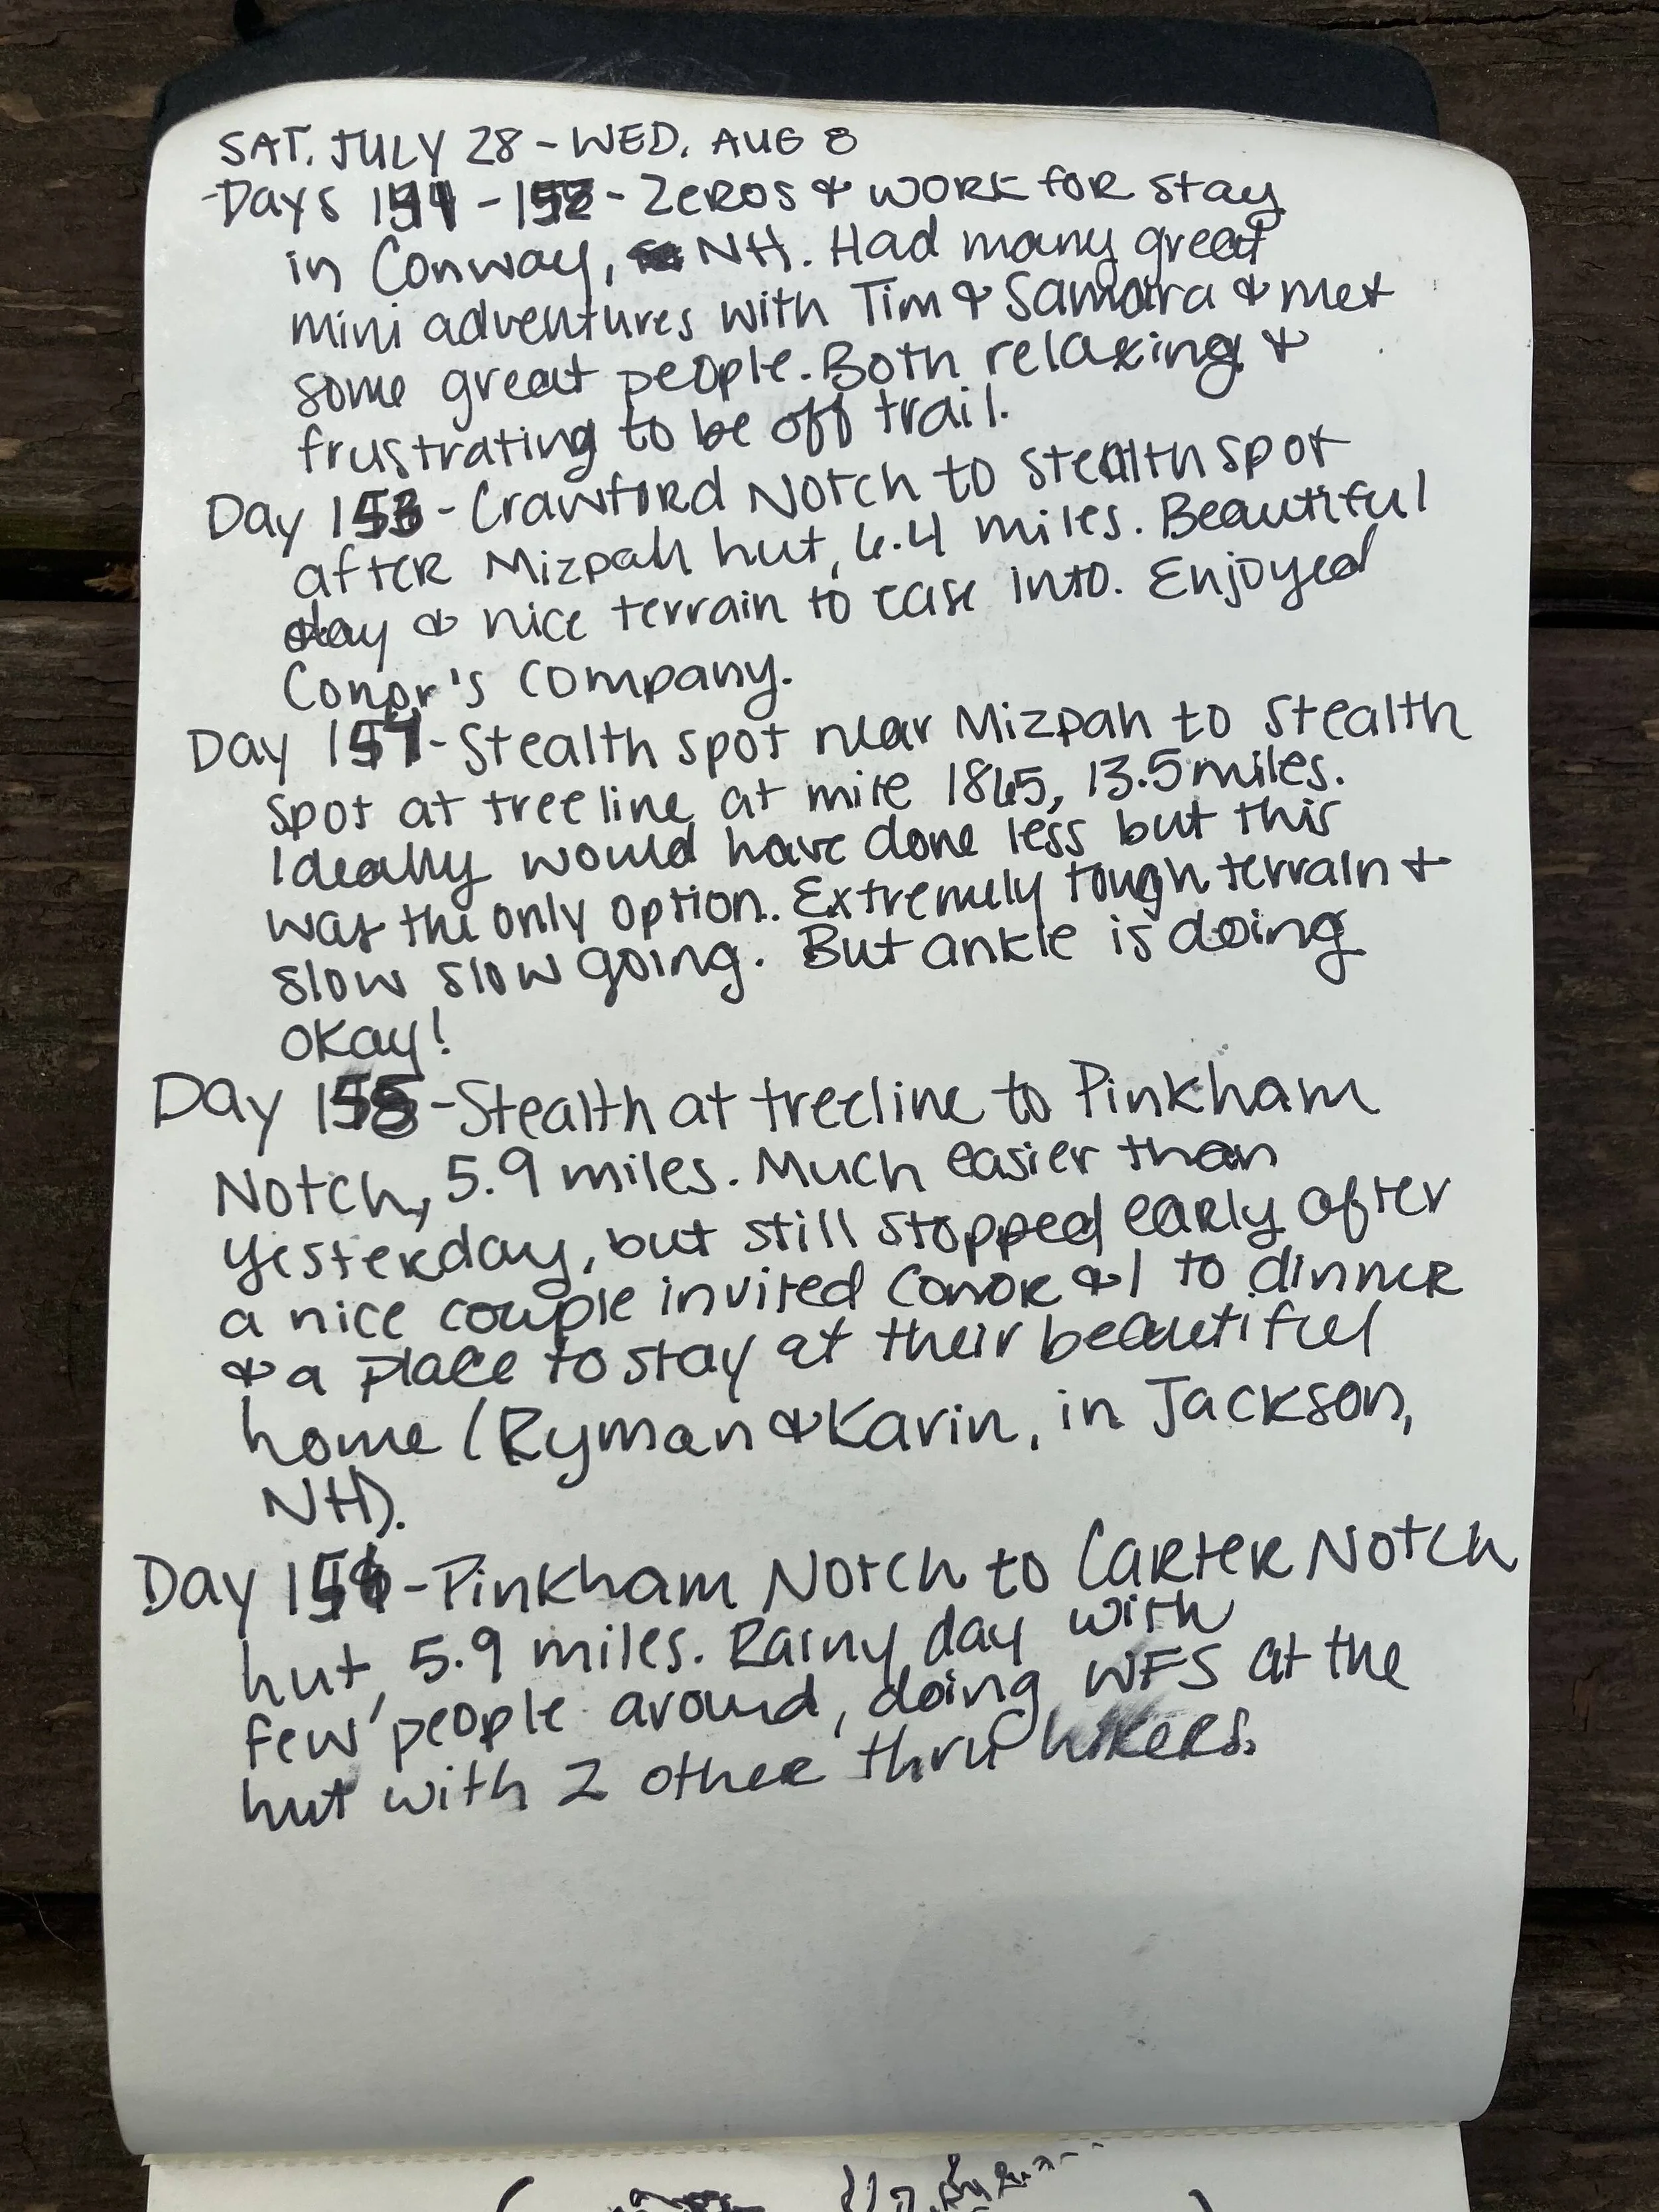 SAT. JULY 28 - WED. AUG 8
Days - Zeros & work for stay
in Conway, NH. Had many great
mini adventures with Tim & Samara & met
some great people. Both relaxing &
frustrating to be off trail.
Day 153 - Crawford Notch to stealth spot
after Mizpah hut, 6.4 miles. Beautiful
day & nice terrain to ease into. Enjoyed
Conor's company.
Day 154 - Stealth spot near Mizpah to stealth
spot at treeline at mile 1865, 13.5 miles.
Ideally would have done less but this
was the only option. Extremely tough terrain &
slow slow going. But ankle is doing
okay!
Day 155 - Stealth at treeline to Pinkham
Notch, 5.9 miles. Much easier than
yesterday, but still stopped early after
a nice couple invited Conor & I to dinner
& a place to stay at their beautiful
home (Ryman & Karin, in Jackson,
NH).
Day 156 - Pinkham Notch to Carter Notch
hut, 5.9 miles. Rainy day with
few people around, doing WFS at the
hut with 2 other thru hikers.